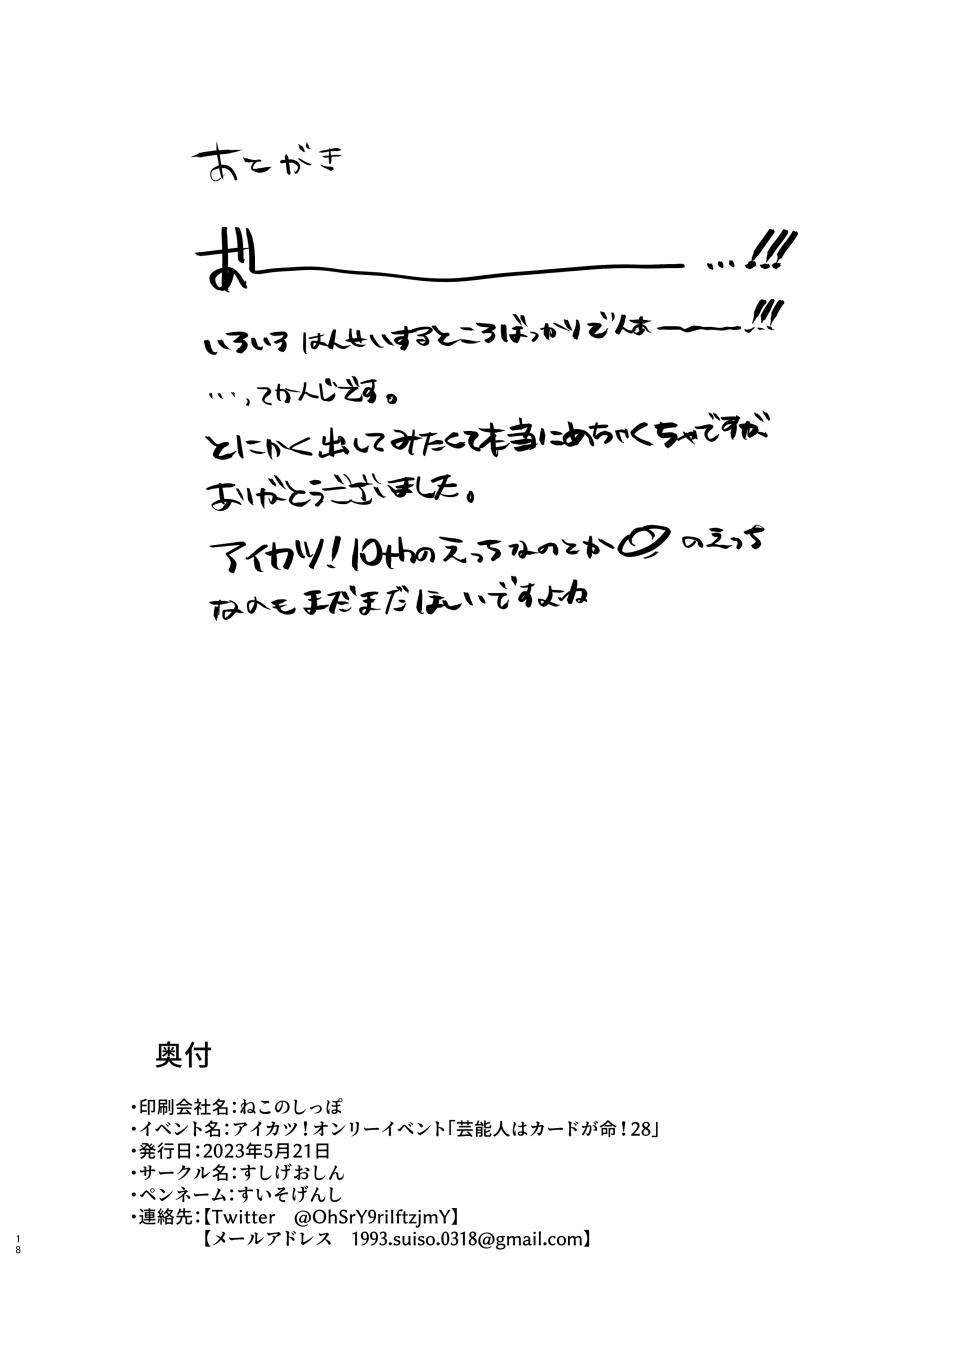 あとがき
お゛———…!!!
いろいろ はんせいするところばっかりでんあ——…!!!
…、てかんじです。
とにかく出してみたくて本当にめちゃくちゃですが
ありがとうございました。
アイカツ!10thのえっちなのとか のえっち
なのもまだまだほしいですよね
奥付
・印刷会社名:ねこのしっぽ
・イベント名:アイカツ!オンリーイベント「芸能人はカードが命!28」
・発行日:2023年5月21日
・サークル名:すしげおしん
・ペンネーム:すいそげんし
・連絡先:【Twitter @OhSrY9rilftzjmY】
【メールアドレス 1993.suiso.0318@gmail.com】
18